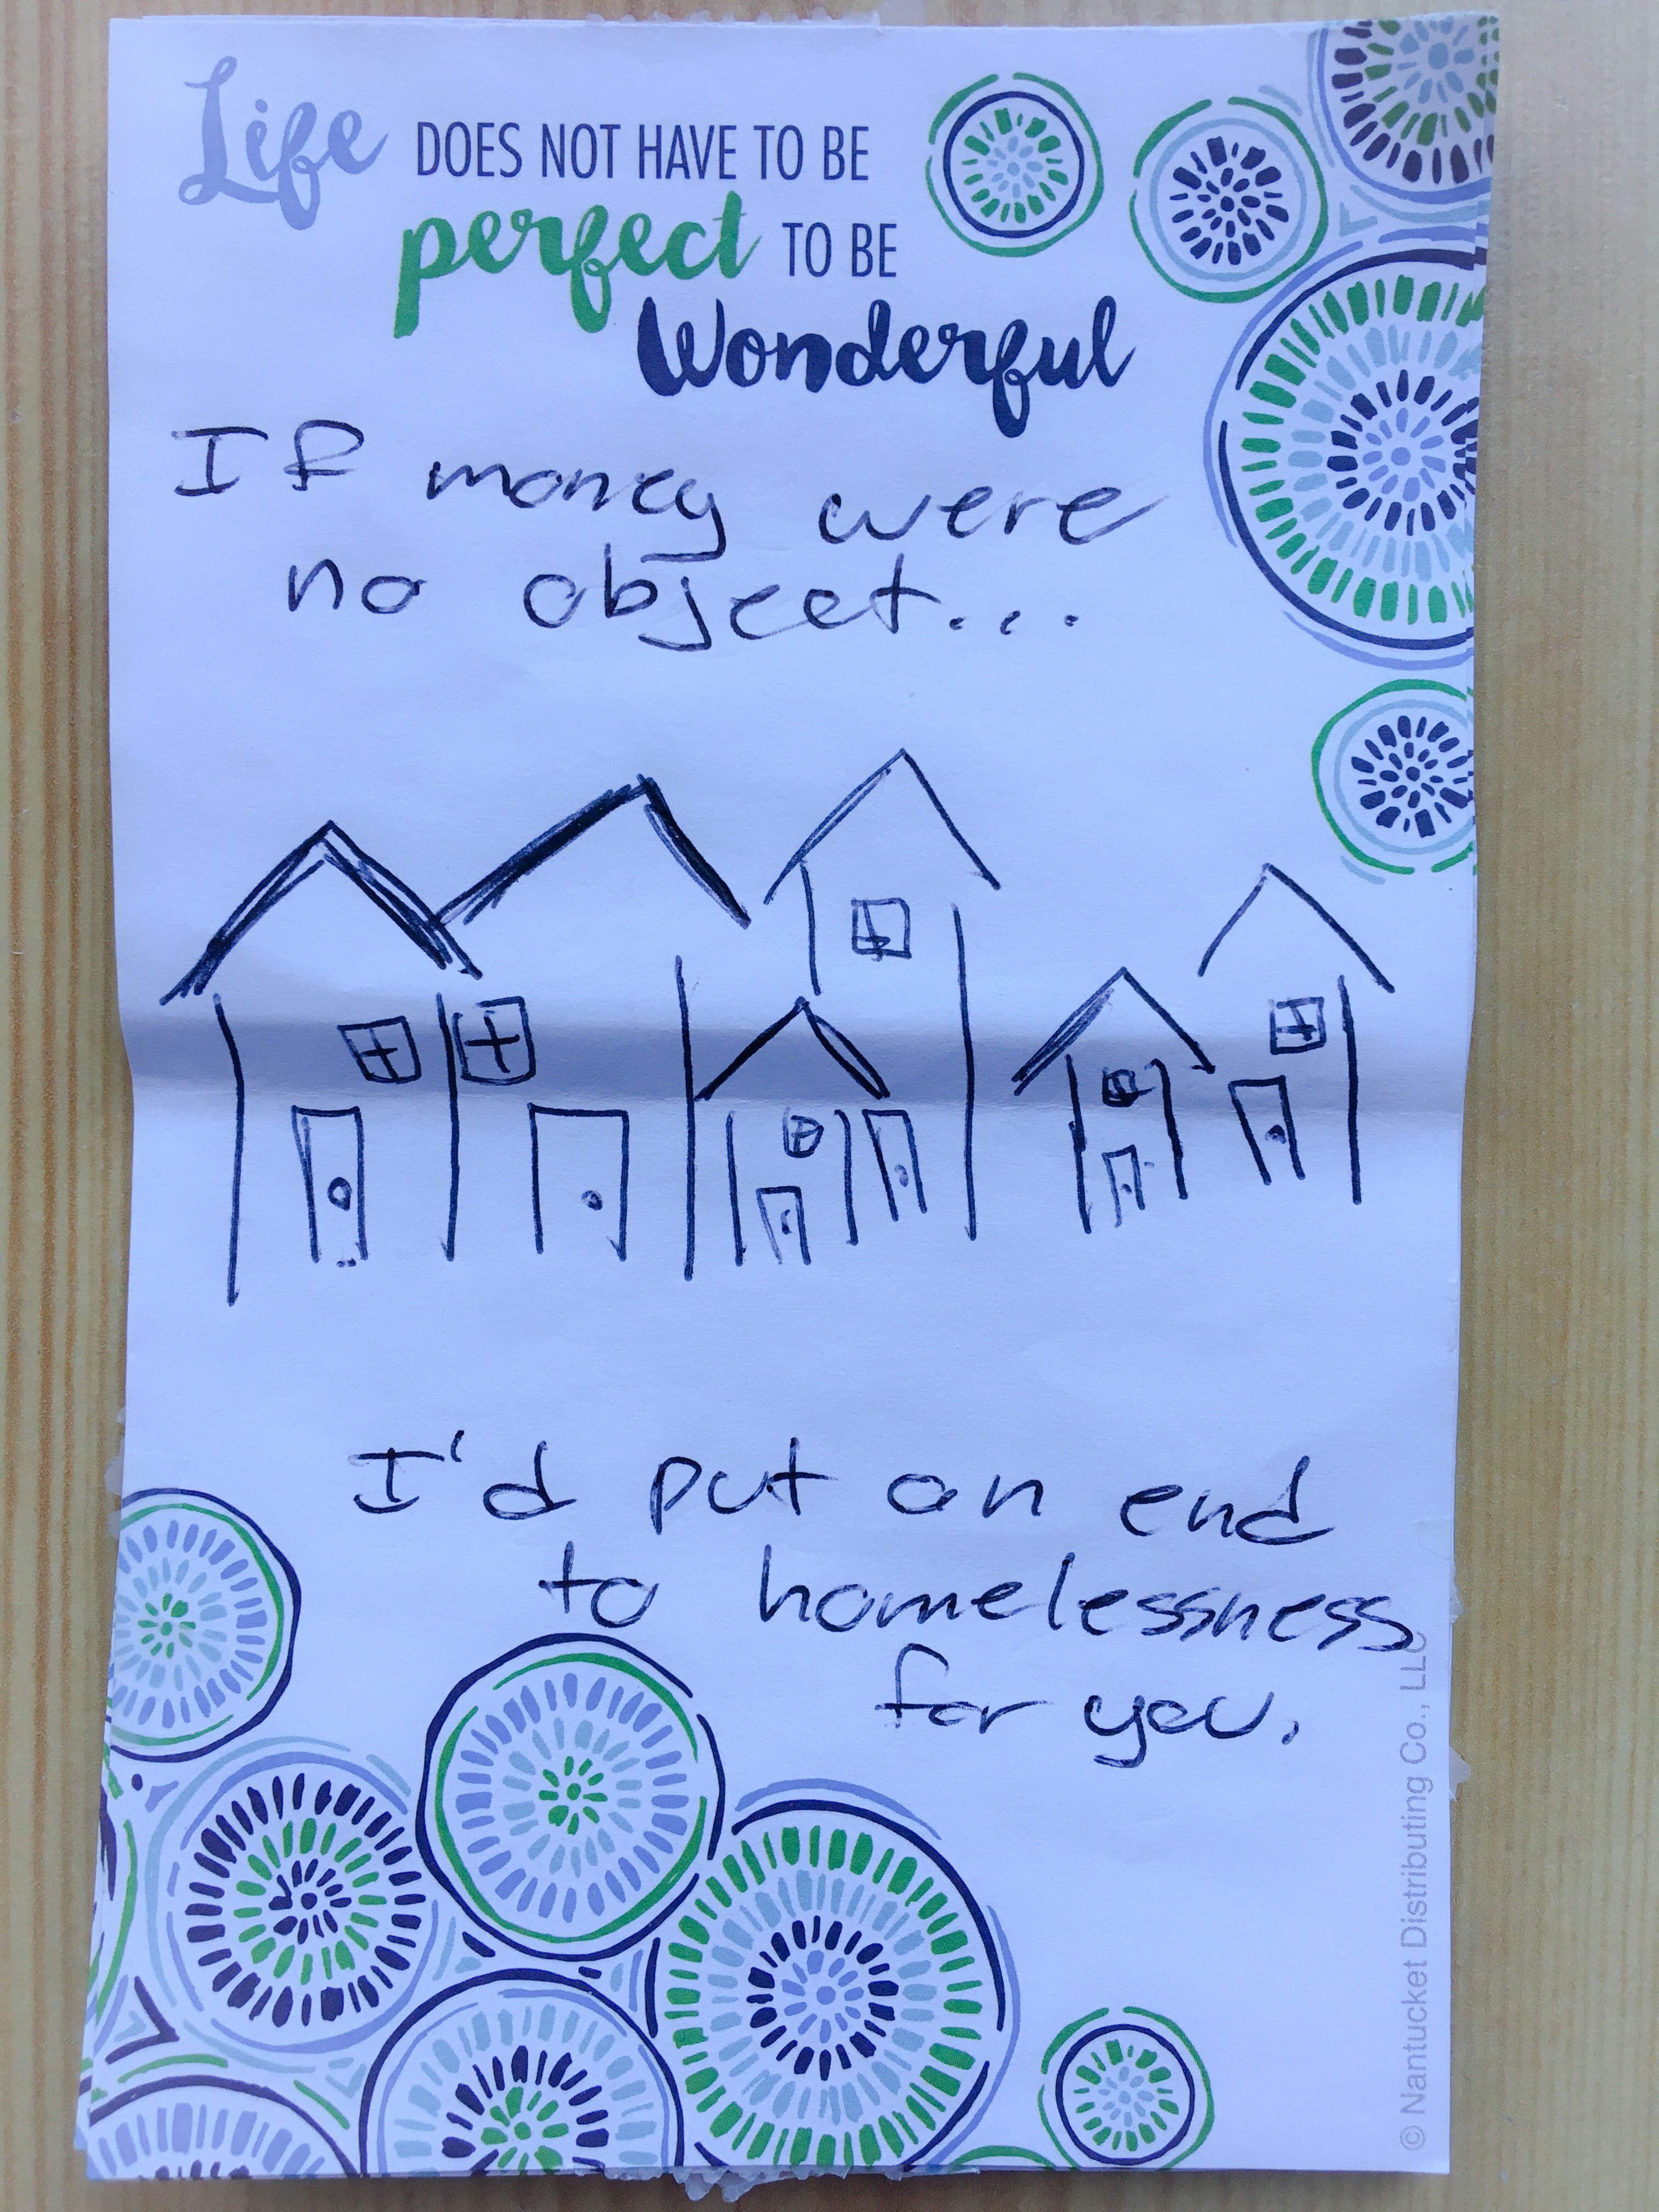 Life DOES NOT HAVE TO BE
perfect TO BE
Wonderful
If money were
no object...
I'd put an end
to homelessness
for you.
© Nantucket Distributing Co., LLC